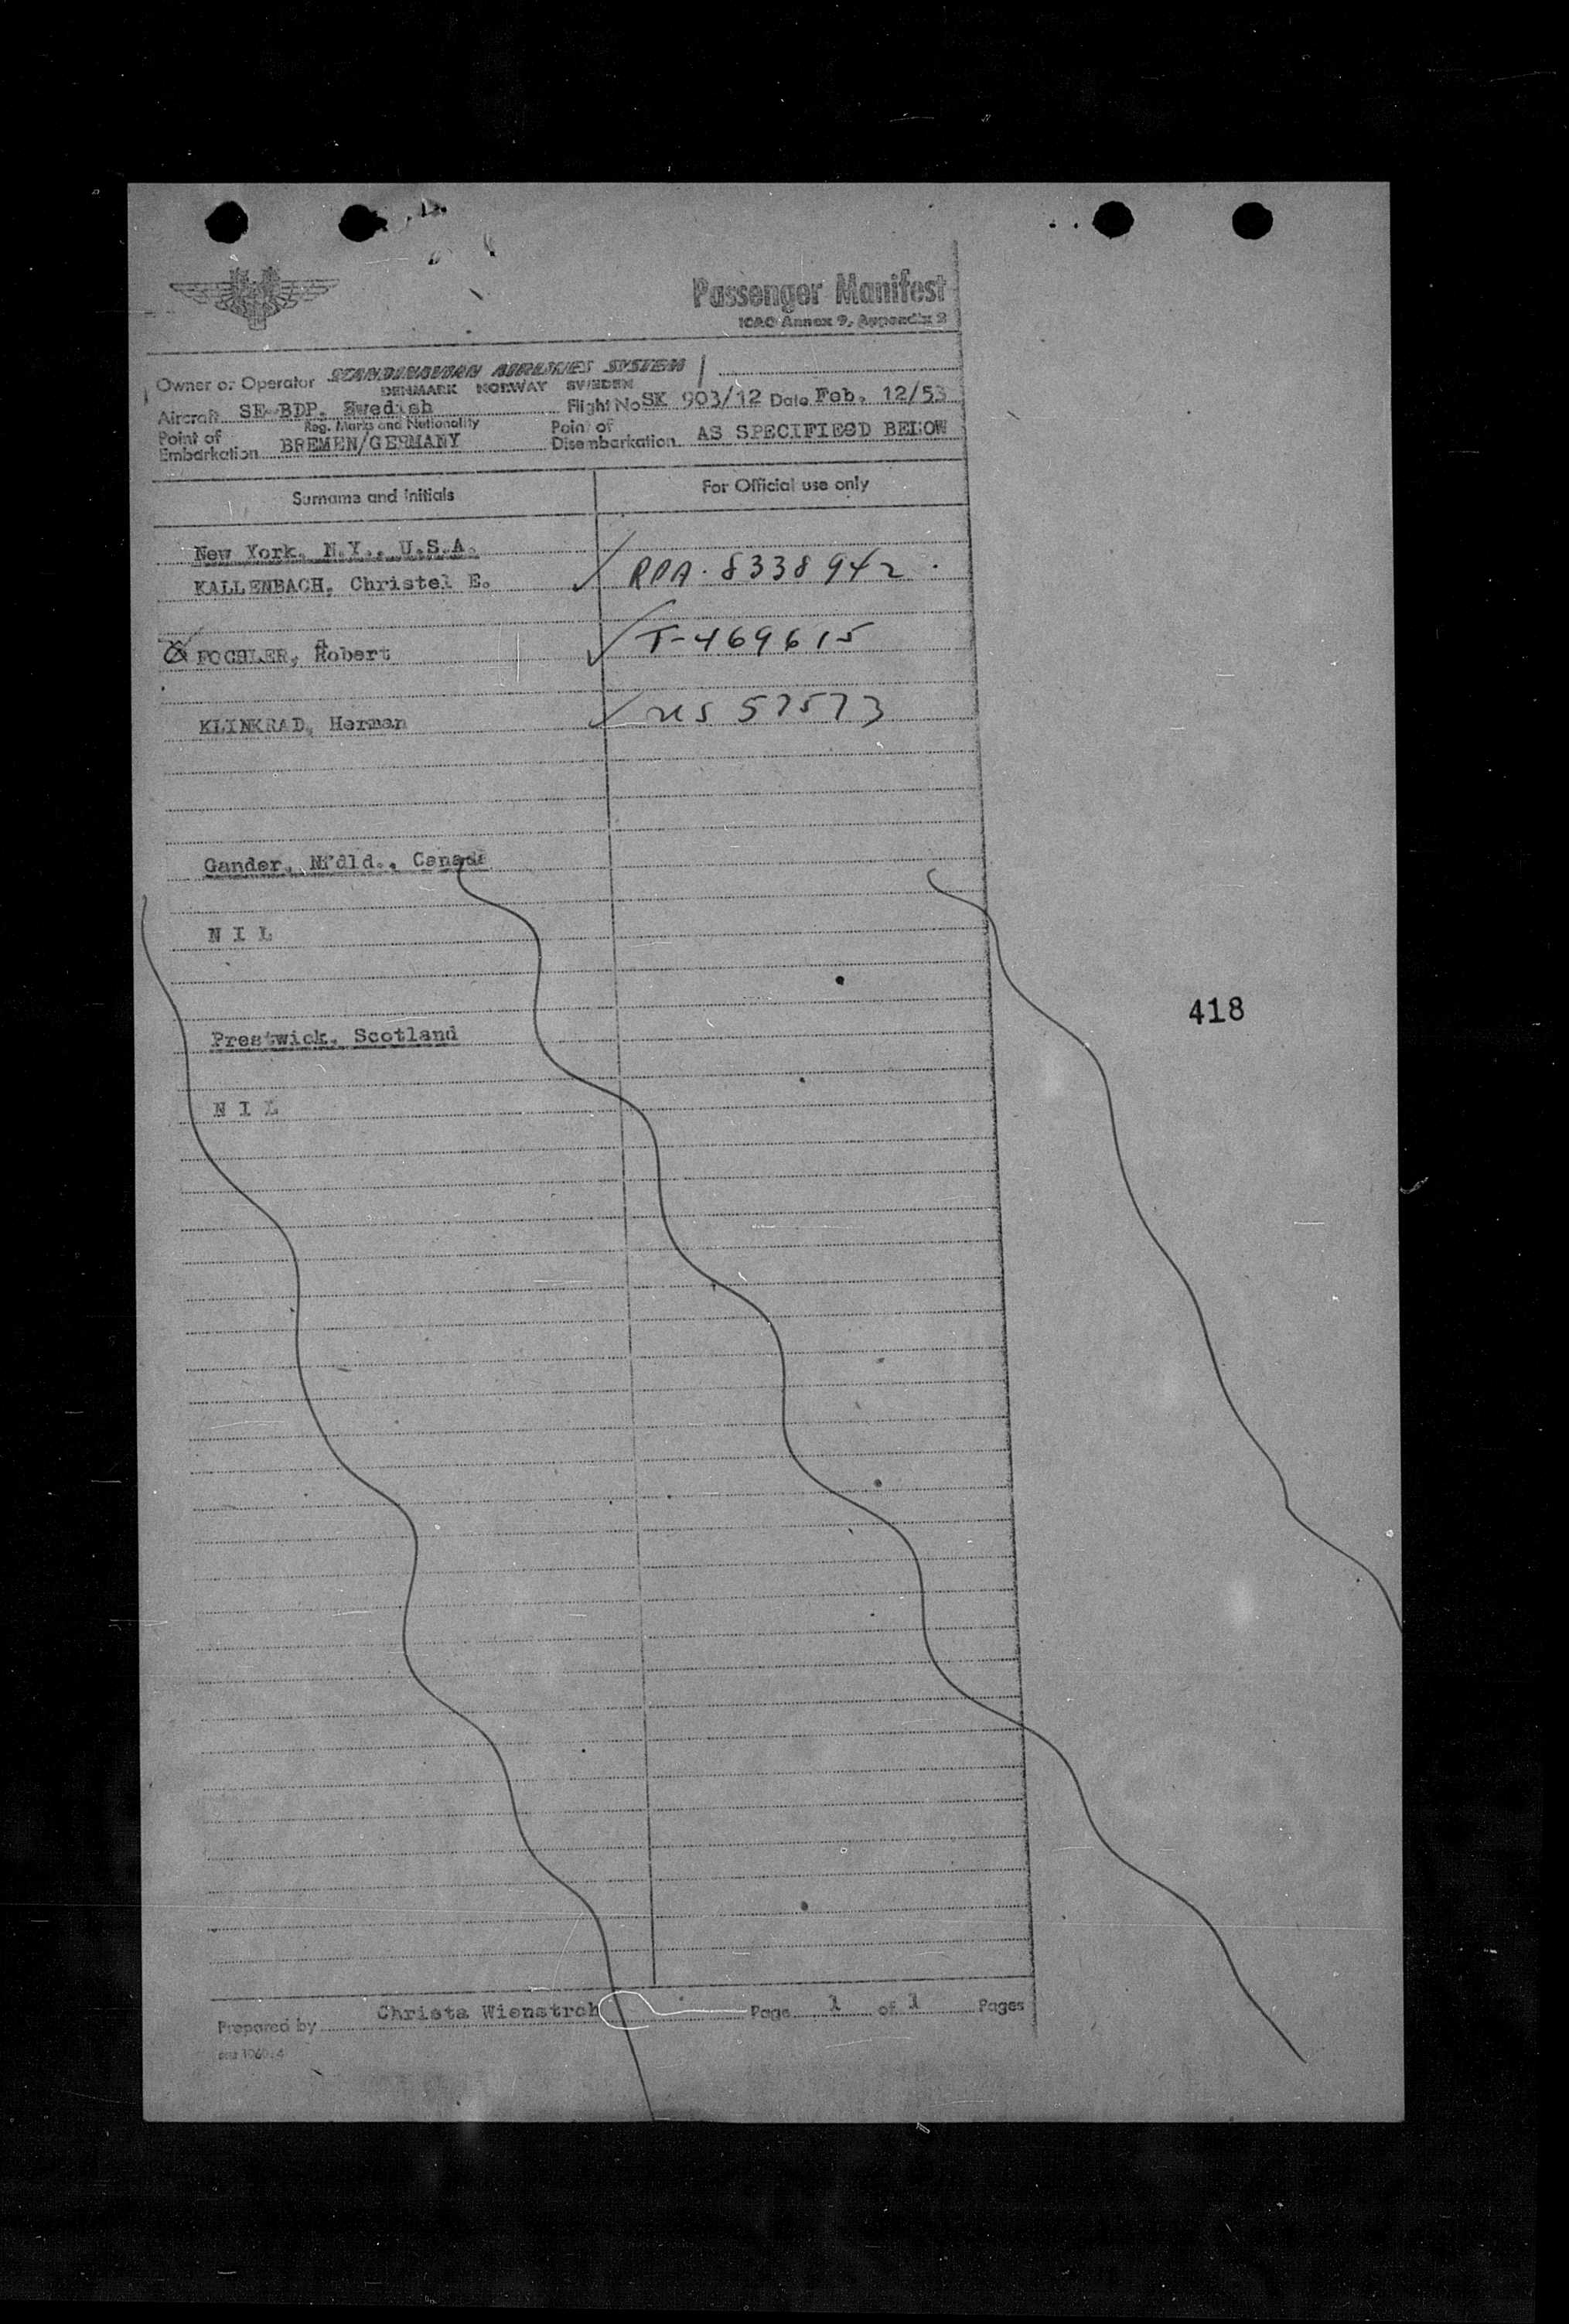 Passenger Manifest
ICAO Annex 9, Appendix 2
Owner or Operator SCANDINAVIAN AIRLINES SYSTEM
DENMARK NORWAY SWEDEN
Aircraft SE-BDP. Swedish Flight No SK 903/12 Date Feb. 12/53
Reg. Marks and Nationality
Point of Embarkation BREMEN/GERMANY Point of Disembarkation AS SPECIFIEOD BELOW
Surname and initials For Official use only
New York, N.Y., U.S.A.
KALLENBACH, Christel E. RPA. 8338942
FOCHLER, Robert T-469615
KLINKRAD, Herman US 57573
Gander, Nfdld., Canada
N I L
418
Prestwick, Scotland
N I L
Prepared by Christa Wienstroh Page 1 of 1 Pages